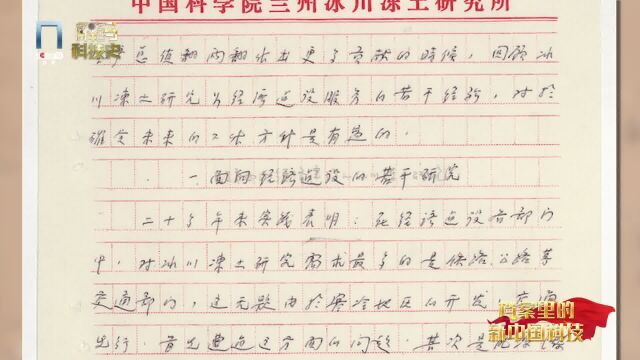 中国科学院兰州冰川冻土研究所
总值翻两翻作出更多贡献的时候，回顾冰
川冻土研究为经济建设服务的若干经验，对于
确定未来的工作方针是有益的．
一 面向经济建设的若干研究
二十多年来实践表明：在经济建设各部门
中，对冰川冻土研究需求最多的是铁路公路等
交通部门，这无疑由于寒冷地区的开发
先行．首先遭遇这方面的问题．其次是
档案里的
新中国科技